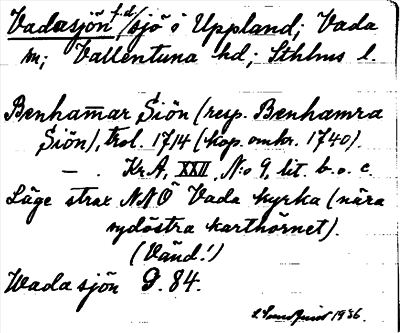 Vadasjön f.d./sjö i Uppland; Vada
sn; Vallentuna hd; Sthlms l.
Benham̅ar Siön (resp. Benhamra
Siön), trol. 1714 (kop. omkr. 1740).
— . Kr.A, XXII, N:o 9, lit. b. o. c.
Läge strax NNÖ Vada kyrka (nära
sydöstra karthörnet).
(Vänd!)
Wada sjön G. 84.
1936.